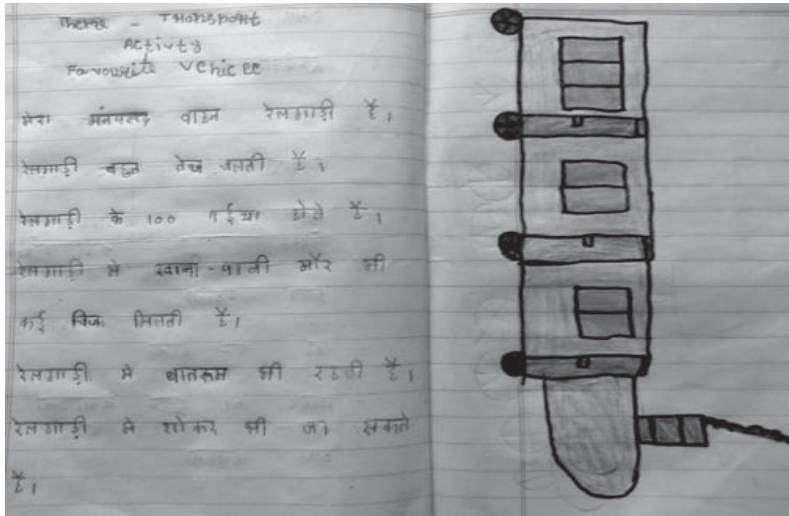 Theme - Transport
Activty
Favourite Vehicle
मेरा मंनपसद वाहन रेलगाड़ी है।
रेलगाड़ी बहुत तेज चलती है।
रेलगाड़ी के 100 पईया होते है।
रेलगाड़ी मे खाना-पानी और भी
कई चिज मिलती है।
रेलगाड़ी मे बातरूम भी रहती है।
रेलगाड़ी मे शोकर भी जा सकते
है।